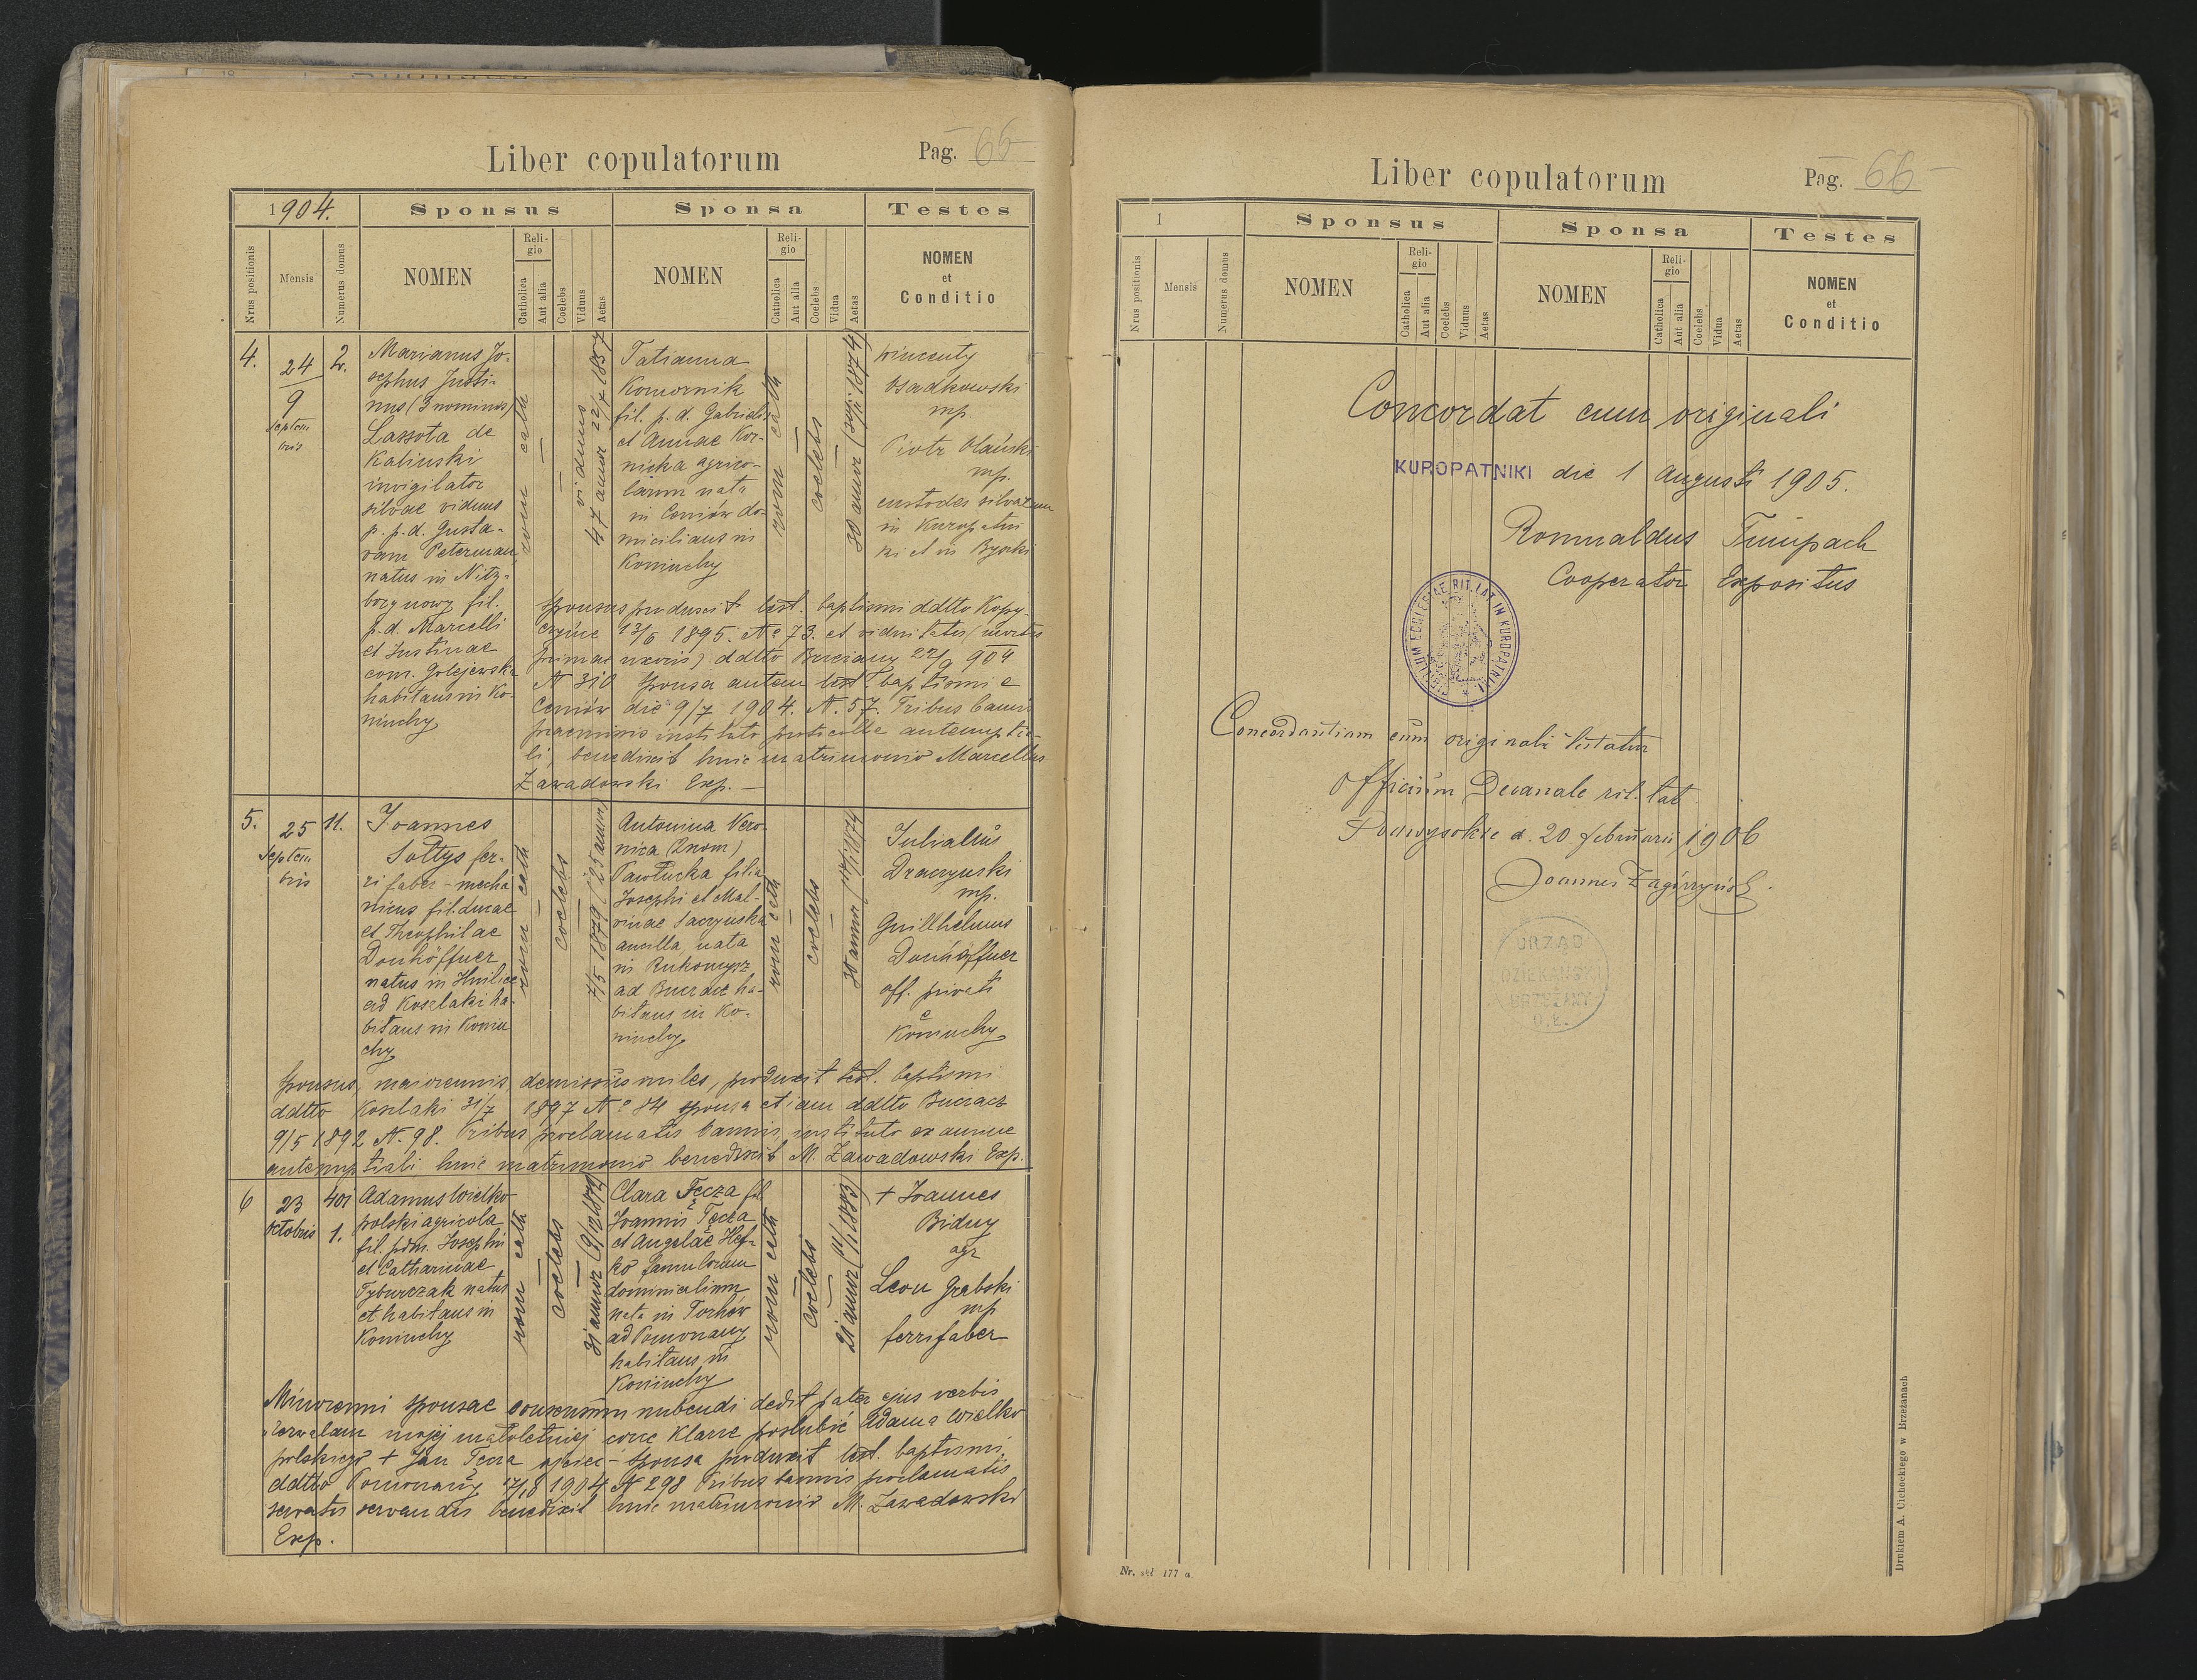 Liber copulatorum
Pag. 65
1904.
Sponsus
Sponsa
Testes
Nrus positionis
Mensis
Numerus domus
NOMEN
Religio
Catholica
Aut alia
Coelebs
Viduus
Aetas
NOMEN
Religio
Catholica
Aut alia
Coelebs
Vidua
Aetas
NOMEN
et
Conditio
4.
24
9
Septem
bris
2.
Marianus Jo-
sephus Justi-
nus (3 nominus)
Lassota de
Kaliuski
invigilator
silvae viduus
p. p. d. Gusta-
vam Peterman
natus in Nitz-
borg nowy fil.
p. d. Marcelli
et Justinae
com. Golejewska
habitans in Ko-
niuchy
rom cath
viduus
47 annor 22/7 1857
Tatianna
Komornik
fil. p. d. Gabrielis
et Annae Kor-
nicka agrico-
larum nata
in Ceniów do-
micilians in
Koniuchy
rom cath
coelebs
30 annor
Wincenty
Osadkowski
mp.
Piotr Olański
mp.
custodes silvarum
in Kuropatni
ki et in Byszki
Sponsus produxit test. baptismi ddtto Kopy-
czyńce 13/6 1895. No 73. et viduitatis (mortis
primae uxoris) ddtto Brzeżany 22/9 904
N 310 Sponsa autem test baptismi e
Ceniów die 9/7 1904. N. 57. Tribus bannis
praemissis instituto protocollo antenuptia-
li, benedixit huic matrimonio Marcellus
Zawadowski Exp. —
5.
25
Septem
bris
11.
Joannes
Sołtys fer-
ri faber - mecha
nicus fil. Lucae
et Theophilae
Donhöffner
natus in Hnilice
ad Koszlaki ha-
bitans in Koniu
chy
rom cath
coelebs
7/5 1879 (25 annor)
Antonina Vero-
nica (2 nom)
Pawłucka filia
Josephi et Mal-
vinae Saczynska
ancilla nata
in Rukomysz
ad Buczacz ha-
bitans in Ko-
niuchy
rom cath
coelebs
30 annor
Julialius
Draczynski
mp.
Guillhelmus
Donhöffner
off. privati
e
Koniuchy
Sponsus, maiorennis, demissus miles, produxit test. baptismi
ddtto Koszlaki 31/7 1897 No 84 sponsa etiam ddtto Buczacz
9/5 1892 N. 98. Tribus proclamatis bannis, instituto examine
antenuptiali huic matrimonio benedixit M. Zawadowski Exp.
6
23
Octobris
401
1.
Adamus Wielko
polski agricola
fil. pdm. Josephi
et Catharinae
Tyburczak natus
et habitans in
Koniuchy
rom cath
coelebs
31 annor
Clara Tęcza fil
Joannis Tęcza
et Angelae Hef-
ko famulorum
dominicalium
nata in Torhów
ad Pomorzany
habitans in
Koniuchy
rom cath
coelebs
21 annor
+ Joannes
Bidny
agr
Leon Grabski
mp
ferrifaber
Minorenni sponsae consensum nubendi dedit pater ejus verbis
"Zezwalam mojej małoletniej córce Klarze poślubić Adama Wielko
polskiego + Jan Tęcza ojciec - Sponsa produxit test. baptismi
ddtto Pomorzany 17/8 1904 N 298 Tribus bannis proclamatis
servatis servandis benedixit huic matrimonio M. Zawadowski
Exp.
Liber copulatorum
Pag. 66
1
Sponsus
Sponsa
Testes
Nrus positionis
Mensis
Numerus domus
NOMEN
Religio
Catholica
Aut alia
Coelebs
Viduus
Aetas
NOMEN
Religio
Catholica
Aut alia
Coelebs
Vidua
Aetas
NOMEN
et
Conditio
Concordat cum originali
KUROPATNIKI die 1 Augusti 1905.
Romualdus
Cooperator Expositus
Concordantiam cum originali testatur
Officium Decanale rit. lat
Podwysokie d. 20 februarii 1906
Joannes
URZĄD
DZIEKAŃSKI
BRZEŻANY
O.Ł.
Nr. skł 177 a
Drukiem A. Cichockiego w Brzeżanach